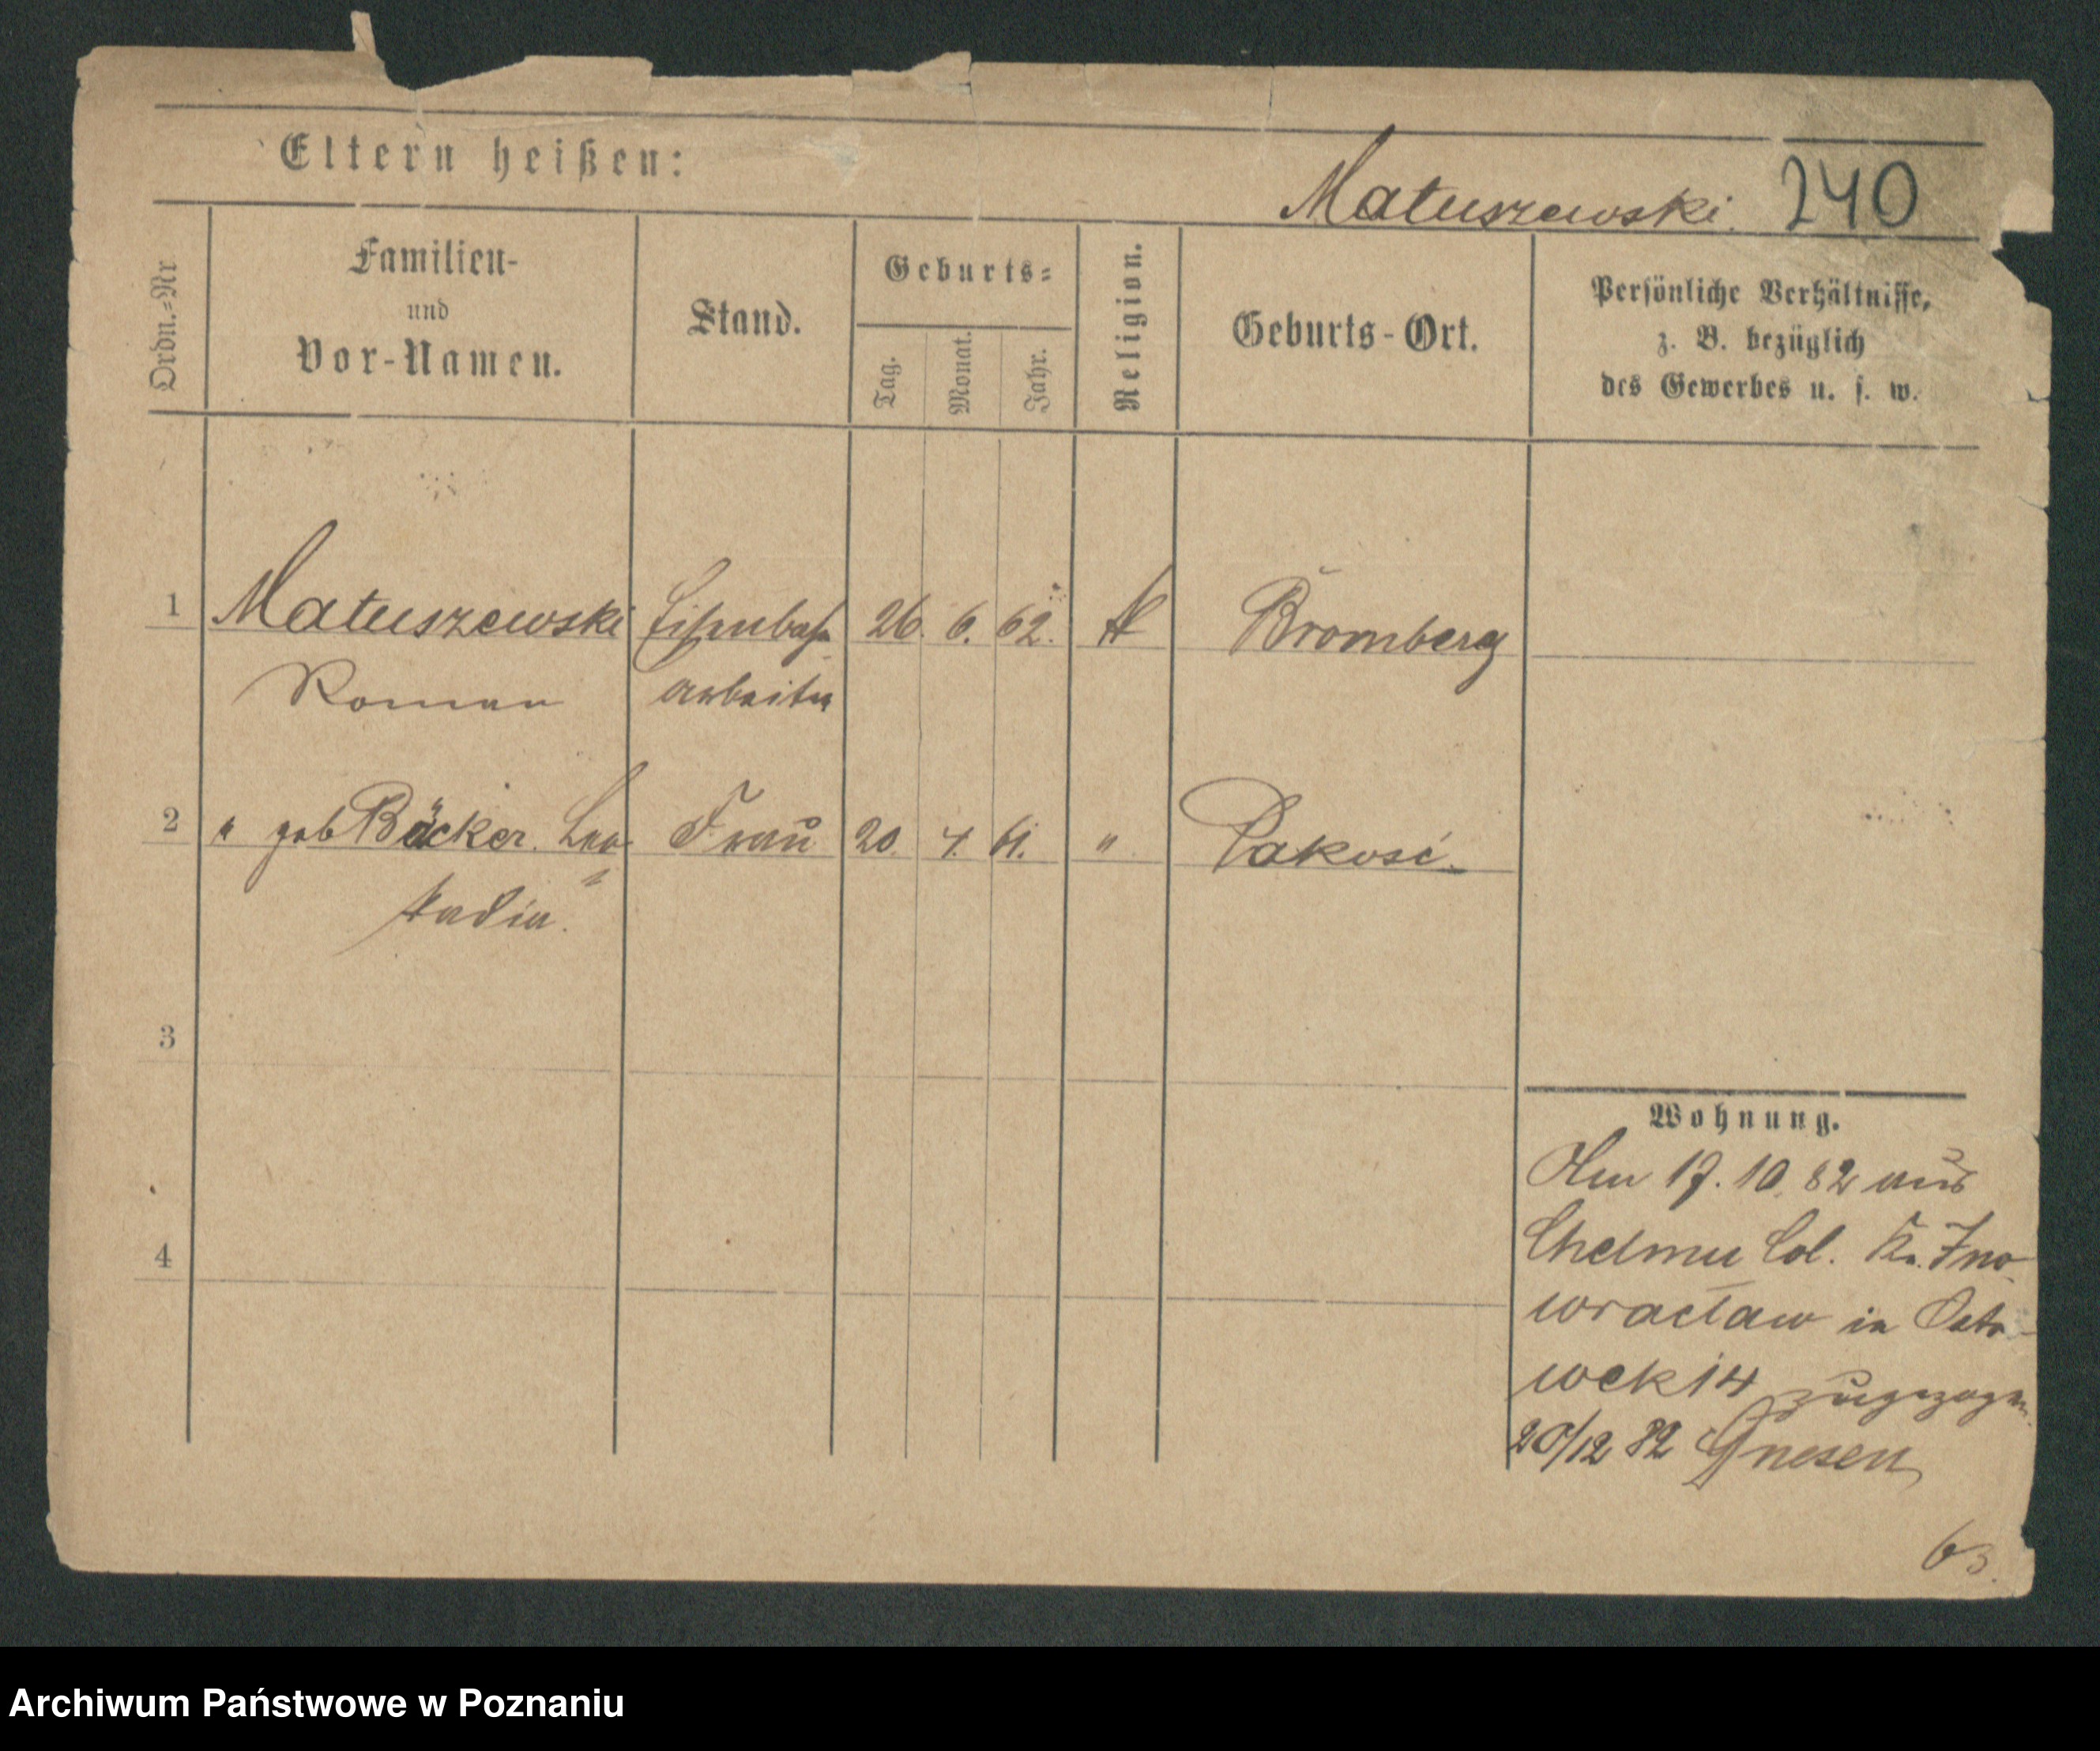 Eltern heißen:
Matuszewski. 240
Ordn.=Nr
Familien-
und
Vor-Namen.
Stand.
Geburts=
Tag.
Monat.
Jahr.
Religion.
Geburts-Ort.
Persönliche Verhältnisse,
z. B. bezüglich
des Gewerbes u. s. w.
1 Matuszewski Eisenbahn 26. 6. 62. k Bromberg
Roman arbeiter
2 " geb Bäcker. Leo- Frau 20. 4. 61. " Pakość.
kadia.
3
4
Wohnung.
Am 17. 10. 82 aus
Chelmu Col. Kr. Ino-
wracław in
wek 14 zugezogen.
20/12 82 Gnesen
63.
Archiwum Państwowe w Poznaniu